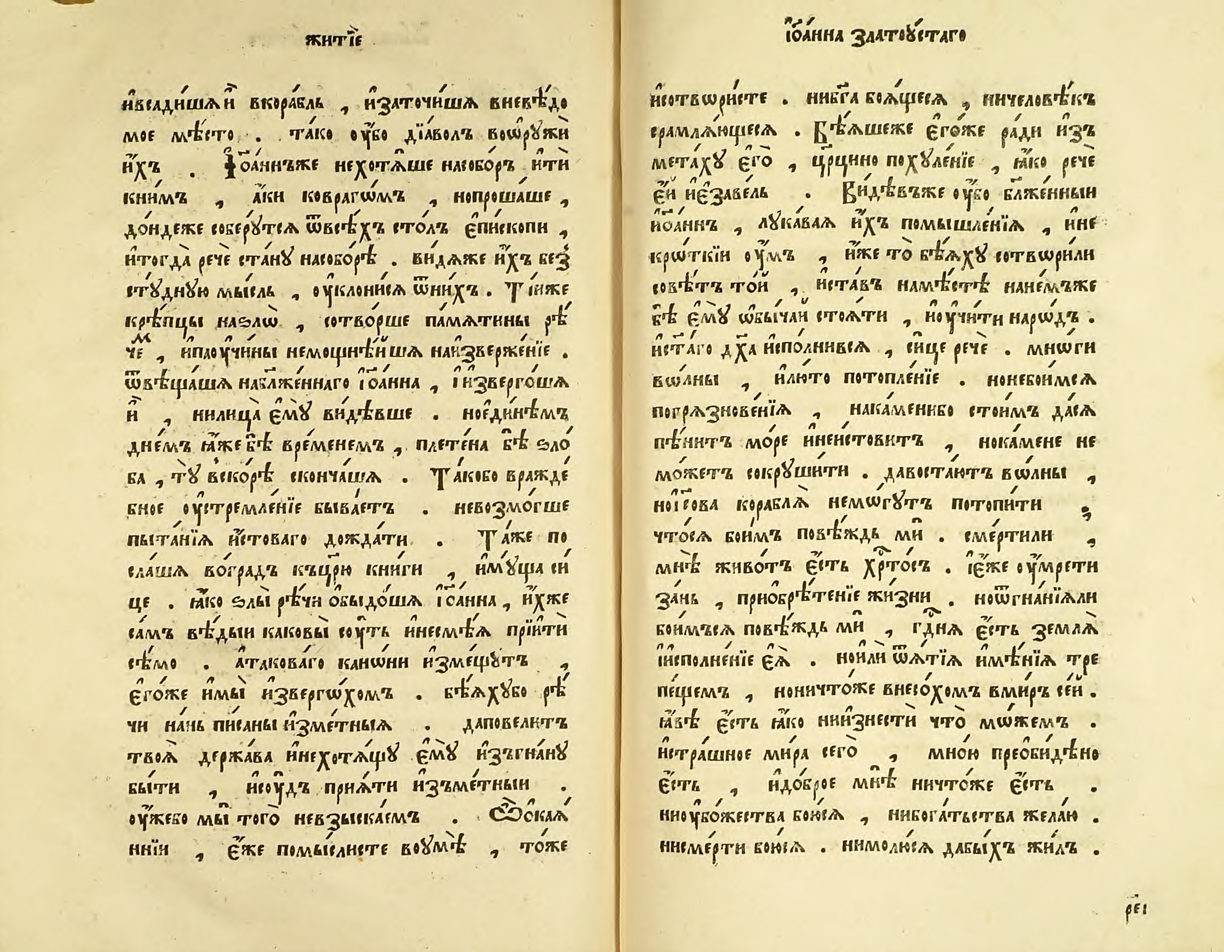 житїе
и҆всадишѧ и҆ вкорабль , и҆заточишѧ вневѣдо
мое мѣсто . тако оу҆бо дїаволъ воѡружи
и҆хъ . І҆оаннъже нехотѧше насоборъ ити
книмъ , а҆ки коврагѡмъ , нопрошаше ,
дондеже соберутсѧ ѿвсѣхъ столъ е҆пископи ,
и҆тогда рече стану насоборѣ . видѧже и҆хъ без
студную мысль , оу҆клонисѧ ѿнихъ . Тїиже
крѣпцы наѕлѡ , сотворше памѧтины рѣ
чеⷨ , и҆плоучины немощнѣйшѧ наизвержение .
ѿвѣщашѧ наблаженнаго І҆оанна , і҆извергошѧ
и҆ , нилица е҆му видѣвше . ноединѣмъ
днемъ ꙗ҆жебѣ временемъ , плетена бѣ ѕло
ба , ту вскорѣ скончашѧ . Такобо вражде
бное оу҆стремление бываетъ . невозмогше
пытанїѧ и҆стоваго дождати . Таже по
слашѧ воградъ къцрю книги , и҆мꙋща си
це . ꙗ҆ко ѕлы рѣчи обыдошѧ І҆оанна , и҆хже
самъ вѣдыи каковы соуть и҆несмѣѧ прїити
сѣмо . атаковаго канѡни и҆змещутъ ,
е҆гоже и҆мы и҆звергѡхомъ . бѣѧхубо рѣ
чи нань писаны и҆зметныѧ . даповелитъ
твоѧ держава и҆нехотѧщу е҆му и҆зъгнану
быти , исоудъ приѧти и҆зъметныи .
оу҆жебо мы того невзыскаемъ . Ѽокаѧ
ннїи , е҆же помыслисте воумѣ , тоже
І҆оанна златоустаго
и҆сотвѡристе . нибга боѧщесѧ , ничеловѣкъ
срамлѧющесѧ . Вѣѧшеже е҆гоже ради и҆зъ
метаху е҆го , црцино похуление , ꙗ҆ко рече
е҆и и҆езавель . Видѣвъже оу҆бо блженныи
и҆оаннъ , лукаваѧ и҆хъ помышленїѧ , и҆не
крѡткїи оу҆мъ , и҆же то бѣѧху сотвѡрили
совѣтъ той , и҆ставъ намѣстѣ нанемъже
бѣ е҆му ѡ҆бычай стоѧти , и҆оучити нарѡдъ .
и҆стаго дха и҆сполнивсѧ , сице рече . мнѡги
вѡлны , и҆люто потопление . нонебоимсѧ
погрѧзновенїѧ , накаменибо стоимъ дасѧ
пѣнитъ море и҆неистовитъ , нокамене не
можетъ сокрушити . давостаютъ вѡлны ,
ноі҆сова корабля немѡгутъ потопити ;
чтосѧ боимъ повѣждь ми . смертили ,
мнѣ животъ е҆сть хртосъ . і҆еже оу҆мрети
зань , приобрѣтение жизни . ноѿгнанїѧли
боимъсѧ повѣждь ми , гднѧ е҆сть землѧ
і҆исполнение е҆ѧ . ноили ѿѧтїѧ и҆мѣнїѧ тре
пещемъ , ноничтоже внесохомъ вмиръ сей .
ꙗ҆вѣ е҆сть ꙗ҆ко ниизнести что мѡжемъ .
и҆страшное мира сего , мною преобидѣно
е҆сть , и҆доброе мнѣ ничтоже е҆сть .
ниоубожества боюсѧ , нибогатьства желаю .
нисмерти боюсѧ . нимолюсѧ дабыхъ жилъ .
реі